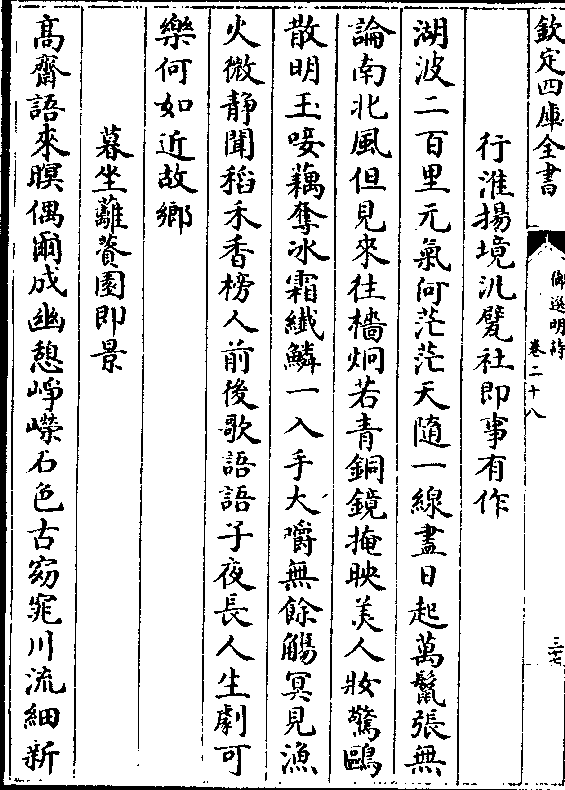 欽定四庫全書
御選明詩
卷二十八
三七
行淮揚境汎甓社即事有作
湖波二百里元氣何茫茫天隨一線盡日起萬鬣張無
論南北風但見來往檣炯若青銅鏡掩映美人妝驚鷗
散明玉唼藕奪冰霜纖鱗一入手大嚼無餘觴冥見漁
火微静聞稻禾香榜人前後歌語語子夜長人生劇可
樂何如近故鄉
暮坐蘺薋園即景
髙齋語來暝偶爾成幽憩崢嶸石色古窈窕川流細新